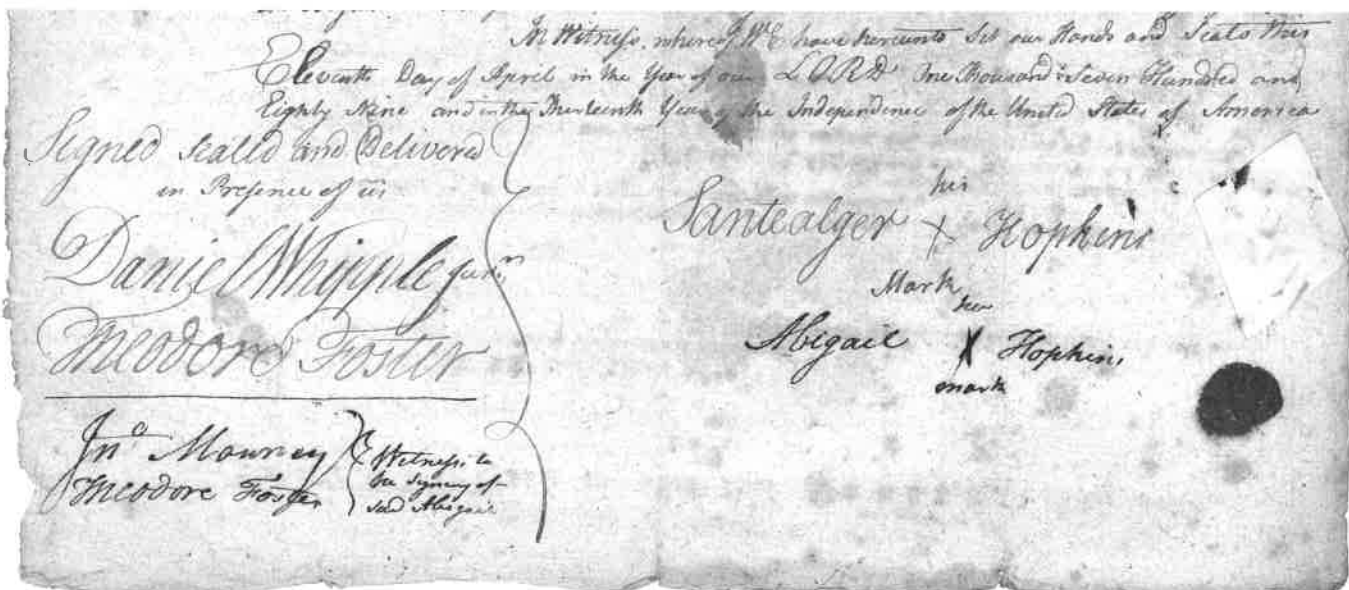 In Witness, whereof, WE have hereunto Set our Hands and Seals this
Eleventh Day of April in the Year of our LORD One Thousand Seven Hundred and
Eighty Nine and in the Thirteenth Year of the Independence of the United States of America
Signed Sealed and Delivered
in Presence of us
Daniel Whipple junr
Theodore Foster
Jno Mowrey
Theodore Foster
Witness to
the Signing of
said Abigail
his
Santealger X Hopkins
Mark
her
Abigail X Hopkins
mark